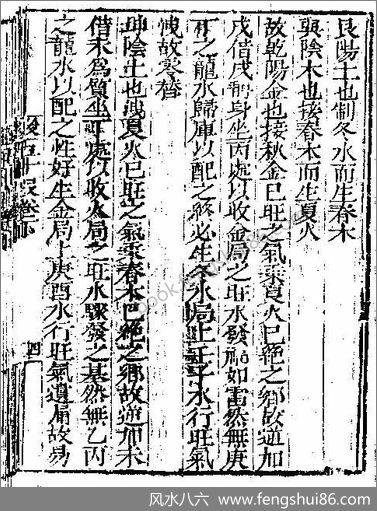 艮陽土也制冬水而生春木
巽陰木也接春木而生夏火
故乾陽金也接秋金已旺之氣乘夏火已絕之鄉故遁加
戊借戌身坐丙處以收金局之旺水發福如雷然無庚
之龍水歸庫以配之終必生冬水局止壬子水行旺氣
洩故替
坤陰土也夏火已旺之氣乘春木已絕之鄉故遁加木
借未為質坐處以收火局之旺水驟發之基然無乙丙
之龍水以配之性好生金局庚酉水行旺氣遺漏故易
四
风水八六
www.fengshui86.com